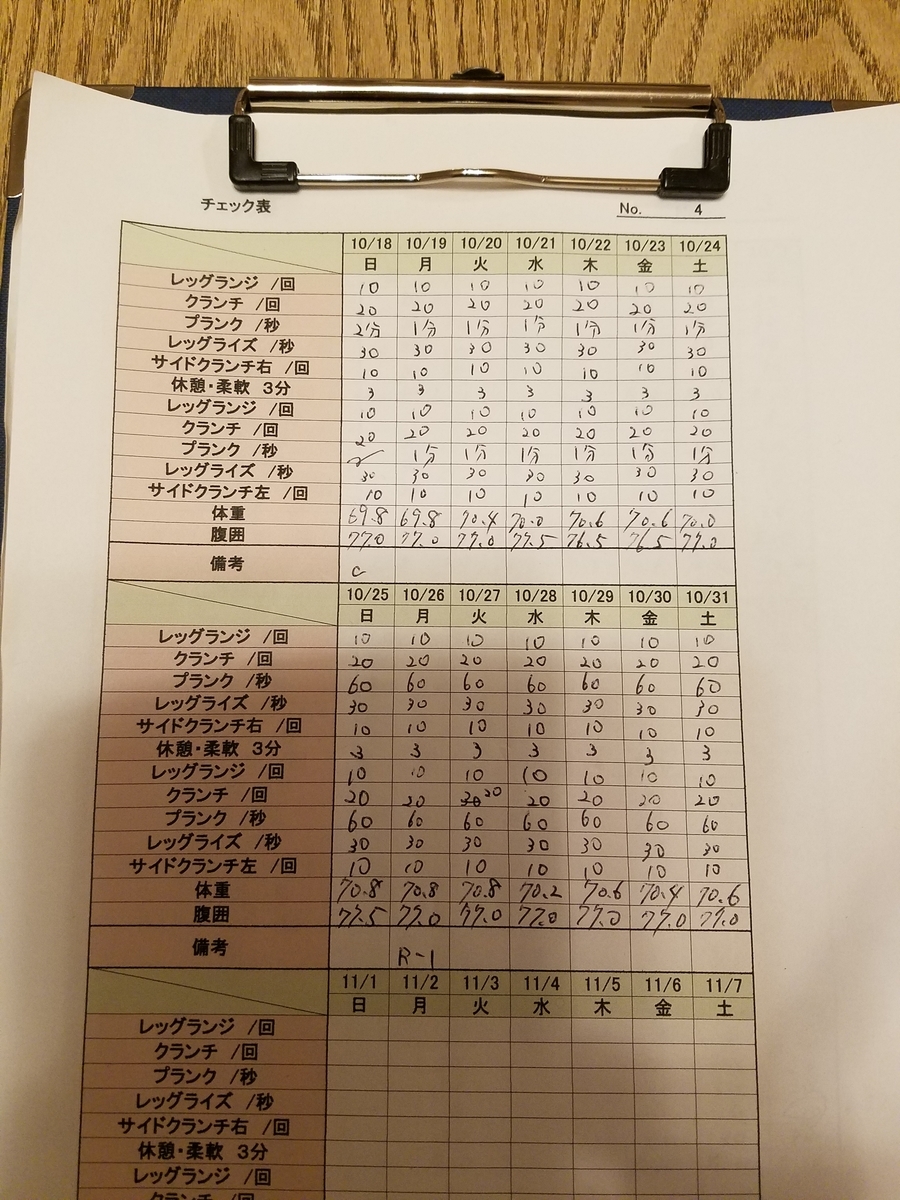 チェック表 No. 4
10/18 10/19 10/20 10/21 10/22 10/23 10/24
日 月 火 水 木 金 土
レッグランジ /回 10 10 10 10 10 10 10
クランチ /回 20 20 20 20 20 20 20
プランク /秒 2分 1分 1分 1分 1分 1分 1分
レッグライズ /秒 30 30 30 30 30 30 30
サイドクランチ右 /回 10 10 10 10 10 10 10
休憩・柔軟 3分 3 3 3 3 3 3 3
レッグランジ /回 10 10 10 10 10 10 10
クランチ /回 20 20 20 20 20 20 20
プランク /秒 1分 1分 1分 1分 1分 1分
レッグライズ /秒 30 30 30 30 30 30 30
サイドクランチ左 /回 10 10 10 10 10 10 10
体重 69.8 69.8 70.4 70.0 70.6 70.6 70.0
腹囲 77.0 77.0 77.0 77.5 76.5 76.5 77.0
備考
10/25 10/26 10/27 10/28 10/29 10/30 10/31
日 月 火 水 木 金 土
レッグランジ /回 10 10 10 10 10 10 10
クランチ /回 20 20 20 20 20 20 20
プランク /秒 60 60 60 60 60 60 60
レッグライズ /秒 30 30 30 30 30 30 30
サイドクランチ右 /回 10 10 10 10 10 10 10
休憩・柔軟 3分 3 3 3 3 3 3 3
レッグランジ /回 10 10 10 10 10 10 10
クランチ /回 20 20 30 20 20 20 20 20
プランク /秒 60 60 60 60 60 60 60
レッグライズ /秒 30 30 30 30 30 30 30
サイドクランチ左 /回 10 10 10 10 10 10 10
体重 70.8 70.8 70.8 70.2 70.6 70.4 70.6
腹囲 77.5 77.0 77.0 77.0 77.0 77.0 77.0
備考 R-1
11/1 11/2 11/3 11/4 11/5 11/6 11/7
日 月 火 水 木 金 土
レッグランジ /回
クランチ /回
プランク /秒
レッグライズ /秒
サイドクランチ右 /回
休憩・柔軟 3分
レッグランジ /回
クランチ /回